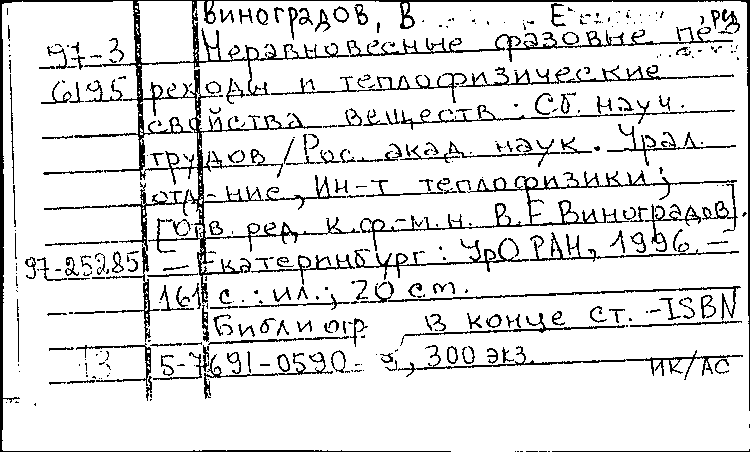 Виноградов, В. Е. , ред
97-3 Неравновесные фазовые пе-
6195 реходы и теплофизические
свойства веществ : Сб. науч.
трудов / Рос. акад. наук. Урал.
отд-ние, Ин-т теплофизики;
[Отв. ред. к.ф.-м.н. В.Е.Виноградов].
97-25285 — Екатеринбург : УрО РАН, 1996. —
161 с. : ил.; 20 см.
Библиогр. в конце ст. - ISBN
13 5-7691-0590- , 300 экз.
ИК/АС